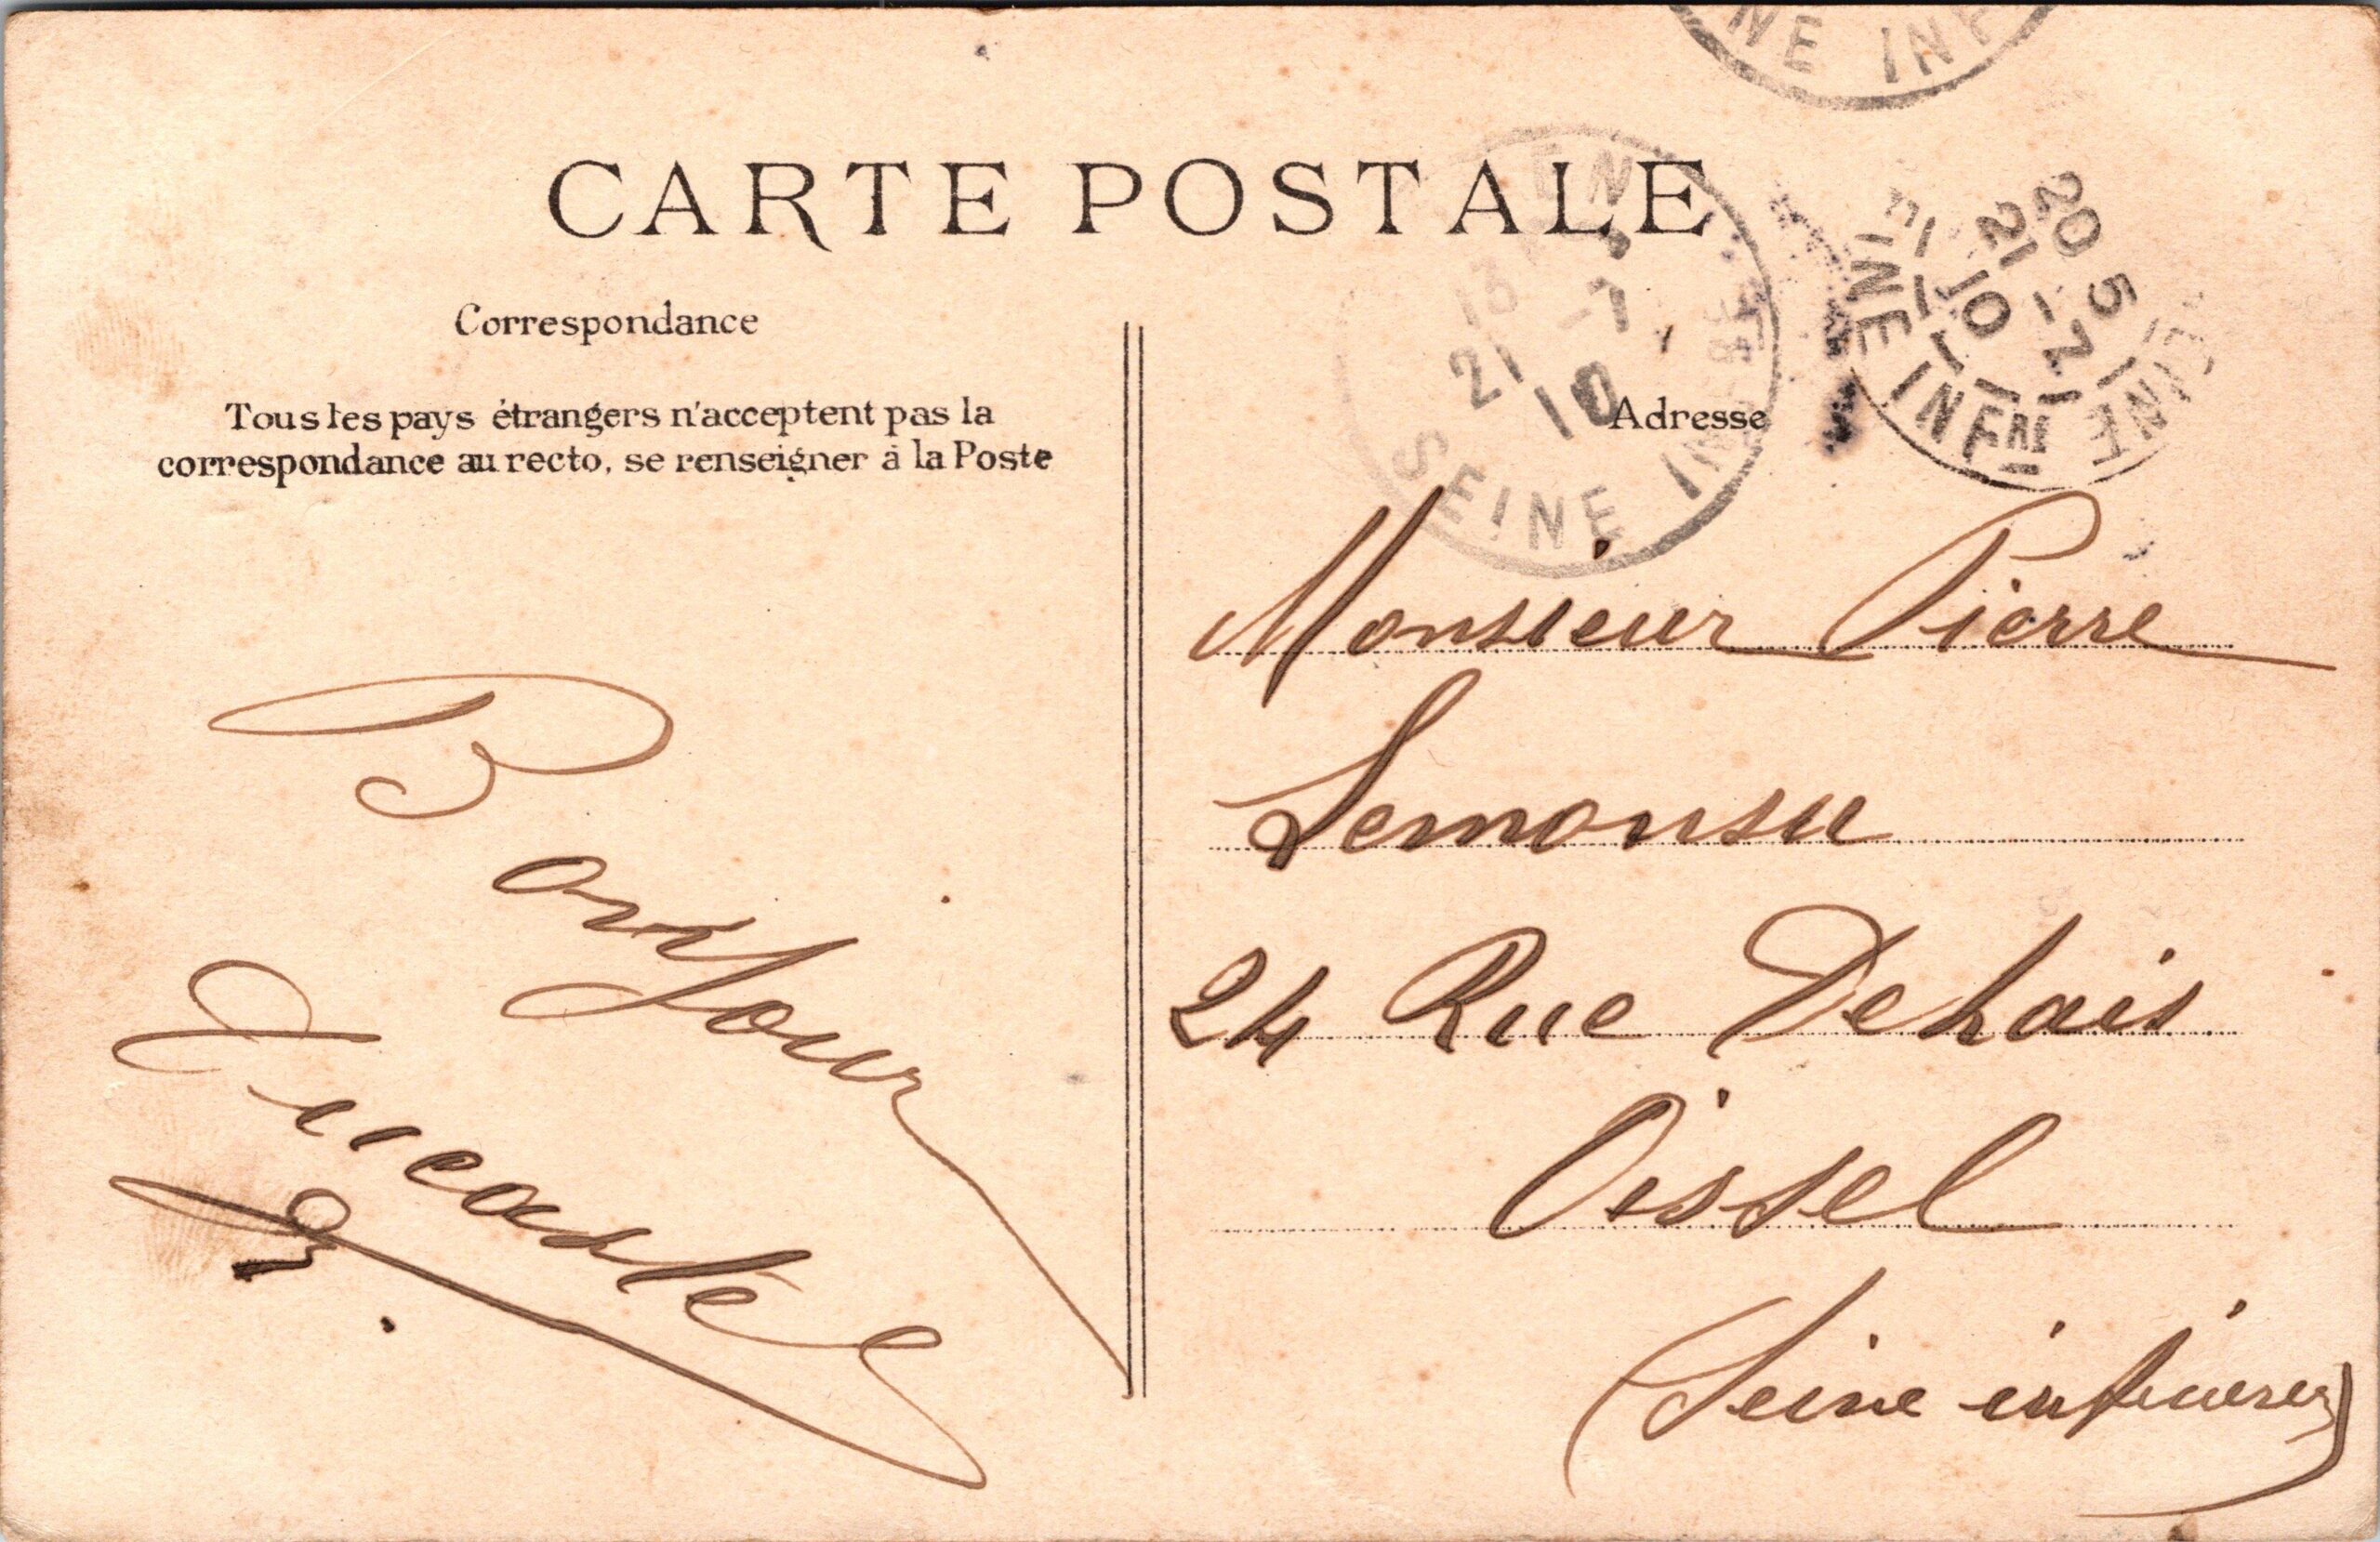 NE INF
CARTE POSTALE
Correspondance
Tous les pays étrangers n'acceptent pas la
correspondance au recto, se renseigner à la Poste
EN
13
21 -7
10
SEINE IN
20 5
21 -7
10
INE INF
Adresse
Monsieur Pierre
Lemonsu
24 Rue Dehais
Oissel
(Seine inférieure)
Bonjour